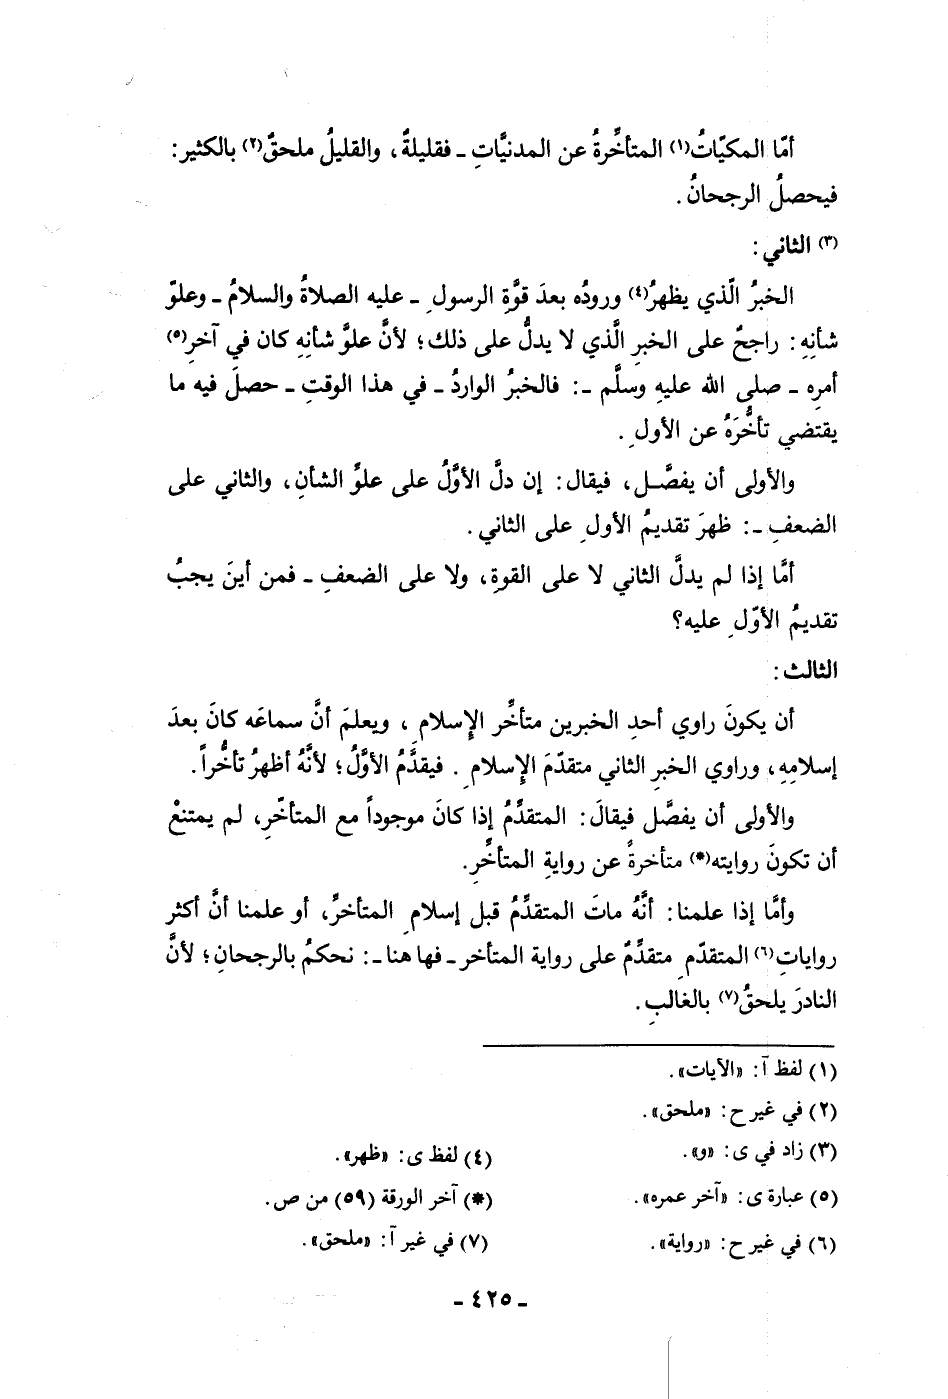 أمّا المكيّاتُ(١) المتأخِّرةُ عن المدنيَّاتِ ـ فقليلةٌ، والقليلُ ملحقٌ(٢) بالكثير:
فيحصلُ الرجحانُ.
(٣) الثاني:
الخبرُ الّذي يظهرُ(٤) ورودُه بعدَ قوَّةِ الرسولِ ـ عليه الصلاةُ والسلامُ ـ وعلوّ
شأنِهِ: راجحٌ على الخبرِ الَّذي لا يدلُّ على ذلك؛ لأنَّ علوَّ شأنِهِ كان في آخرِ(٥)
أمرِه ـ صلى الله عليهِ وسلَّم ـ: فالخبرُ الواردُ ـ في هذا الوقتِ ـ حصلَ فيه ما
يقتضي تأخُّرَهُ عن الأولِ.
والأولى أن يفصَّـل، فيقال: إن دلَّ الأوَّلُ على علوِّ الشأنِ، والثاني على
الضعفِ ـ: ظهرَ تقديمُ الأولِ على الثاني.
أمَّا إذا لم يدلَّ الثاني لا على القوةِ، ولا على الضعفِ ـ فمن أينَ يجبُ
تقديمُ الأوّلِ عليه؟
الثالث:
أن يكونَ راوي أحدِ الخبرين متأخِّر الإِسلامِ، ويعلمَ أنَّ سماعَه كانَ بعدَ
إسلامِهِ، وراوي الخبرِ الثاني متقدّمَ الإِسلامِ. فيقدَّمُ الأوَّلُ؛ لأنَّهُ أظهرُ تأخُّراً.
والأولى أن يفصَّل فيقالَ: المتقدِّمُ إذا كانَ موجوداً مع المتأخّرِ، لم يمتنعْ
أن تكونَ روايته(*) متأخرةً عن روايةِ المتأخِّرِ.
وأمَّا إذا علمنا: أنَّهُ ماتَ المتقدِّمُ قبل إسلامِ المتأخرِّ، أو علمنا أنَّ أكثر
رواياتِ(٦) المتقدّمِ متقدِّمٌ على رواية المتأخر ـ فها هنا ـ: نحكمُ بالرجحانِ؛ لأنَّ
النادرَ يلحقُ(٧) بالغالبِ.
(١) لفظ آ: «الآيات».
(٢) في غير ح: «ملحق».
(٣) زاد في ى: «و».
(٤) لفظ ى: «ظهر».
(٥) عبارة ى: «آخر عمره».
(*) آخر الورقة (٥٩) من ص.
(٦) في غير ح: «رواية».
(٧) في غير آ: «ملحق».
ـ ٤٢٥ ـ